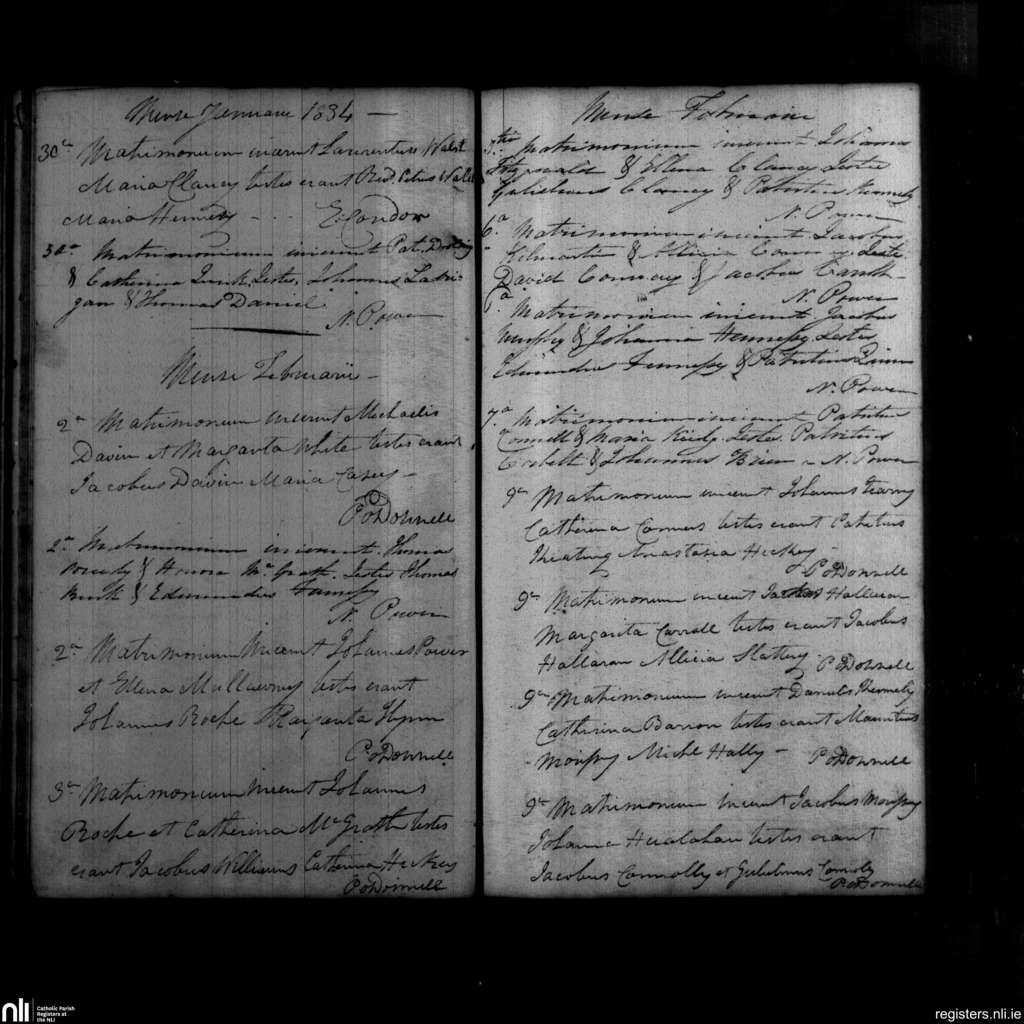 Mense Januarii 1834 —
30a Matrimonium inierunt Laurentius Walsh
Maria Clancy testes erant Revd. Petrus
Maria Kennedy - . . . E. Condon
Matrimonium inierunt Pat.
& Catherina Testes, Johannes
& Thomas Daniel
N. Power
Mense Februarii —
2a Matrimonium inierunt Michaelis
Davin et Margarita White testes erant
Jacobus Davin Maria Casey —
P O'Donnell
2a Matrimonium inierunt Thomas
& Honora McGrath. Testes Thomas
& Edmundus
N. Power
2a Matrimonium inierunt Johannes Power
et Ellena testes erant
Johannes Roche Margarita Flynn
P O'Donnell
3a Matrimonium inierunt Johannes
Roche et Catherina McGrath testes
erant Jacobus Williams Catherina Hickey
P O'Donnell
Mense Februarii
Matrimonium inierunt Johannes
Fitzgerald & Ellena Clancy Testes
Gulielmus Clancy & Patritius Kennedy
N. Power
6.a Matrimonium inierunt Jacobus
& Allicia Testes
David & Jacobus
N. Power
Matrimonium inierunt Jacobus
Murphy & Johanna Hennessy Testes
Edmundus & Patritius
N. Power
7.a Matrimonium inierunt Patritius
Connell & Maria Testes. Patritius
Corbett & Johannes Brien — N. Power
9a Matrimonium inierunt Johannes
Catherina Connors testes erant Patritius
Keating Anastasia Hickey —
P O'Donnell
9a Matrimonium inierunt Halleran
Margarita Carroll testes erant Jacobus
Hallaran Allicia Slattery — P O'Donnell
9a Matrimonium inierunt Daniels
Catherina Barron testes erant Mauritius
Morissy Michl Hally — P O'Donnell
9a Matrimonium inierunt Jacobus Morissy
Johanna testes erant
Jacobus Connolly et Gulielmus Connoly
P O'Donnell
nli
Catholic Parish
Registers at
the NLI
registers.nli.ie